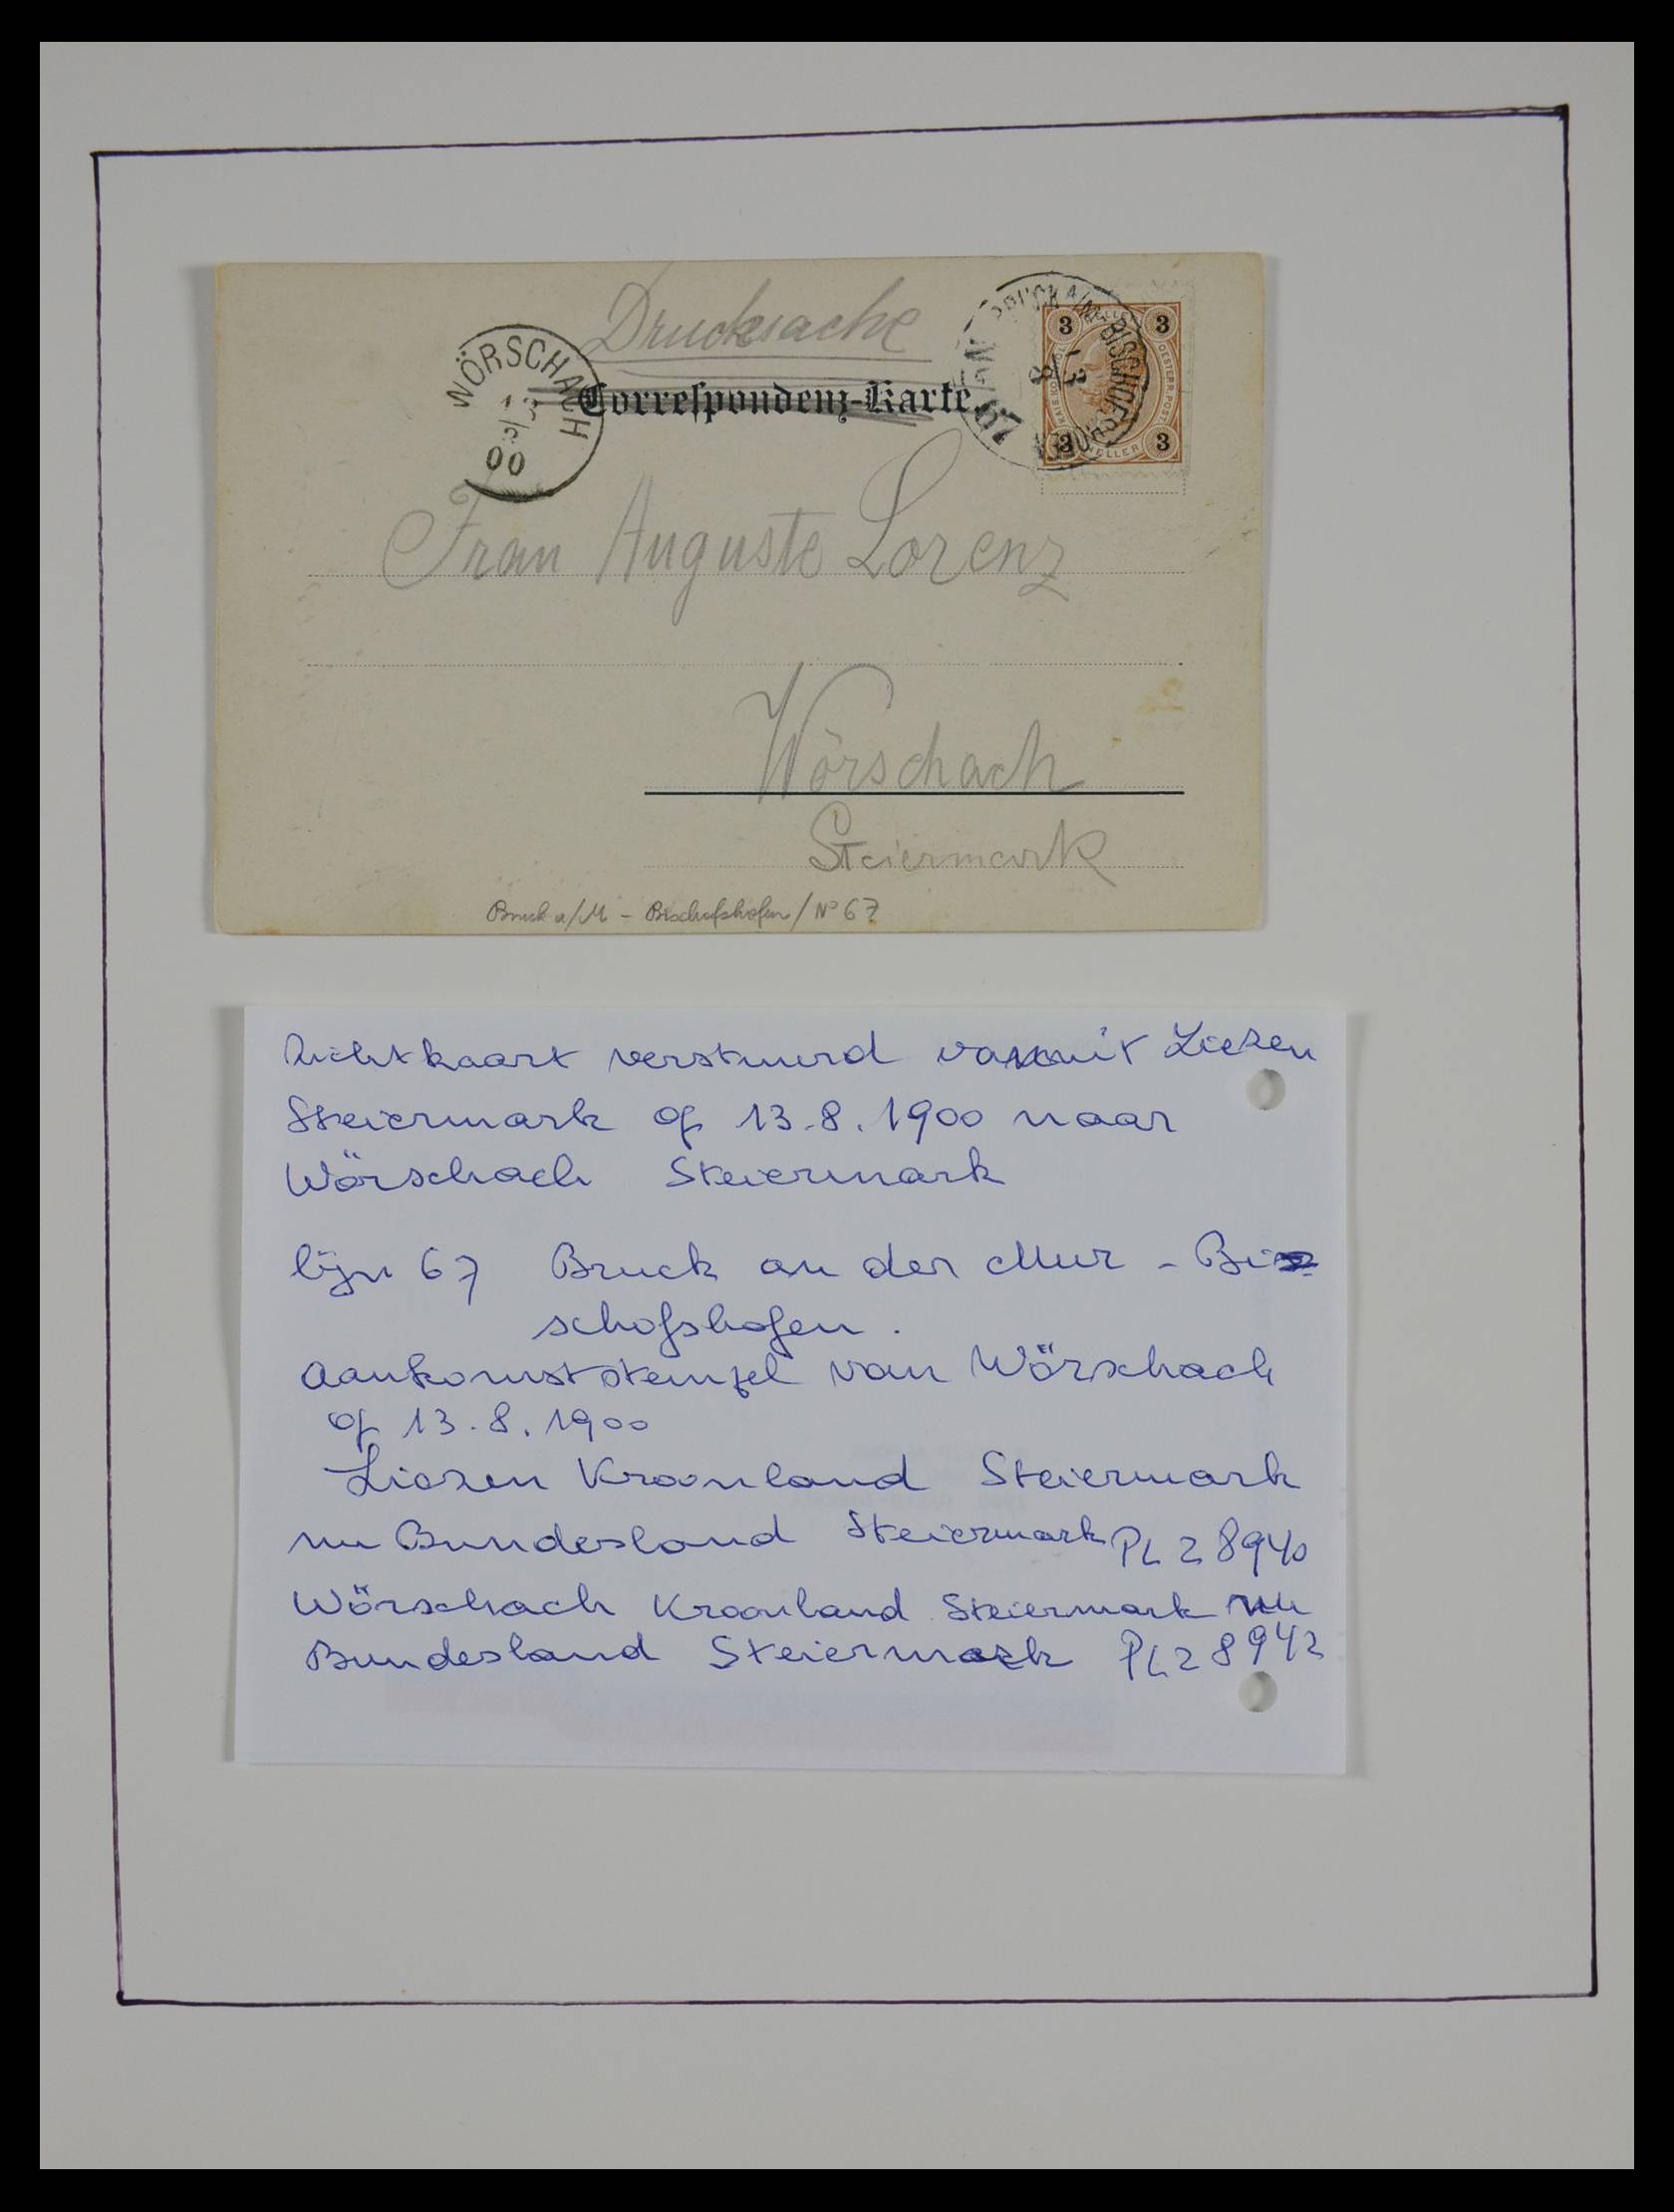 Drucksache
Correspondenz-Karte
WÖRSCHACH
00
BISCHOFSHOFEN
67
13
8
3 3
3 3
HELLER
Frau Auguste Lorenz
Wörschach
Steiermark
Bruck a/M - Bischofshofen / No 67
Zichtkaart verstuurd vanuit Liezen
Steiermark op 13.8.1900 naar
Wörschach Steiermark
lijn 67 Bruck an der Mur - Bi
schofshofen.
Aankomststempel van Wörschach
op 13.8.1900
Liezen Kroonland Steiermark
nu Bundesland Steiermark PLZ 8940
Wörschach Kroonland Steiermark nu
Bundesland Steiermark PLZ 8942